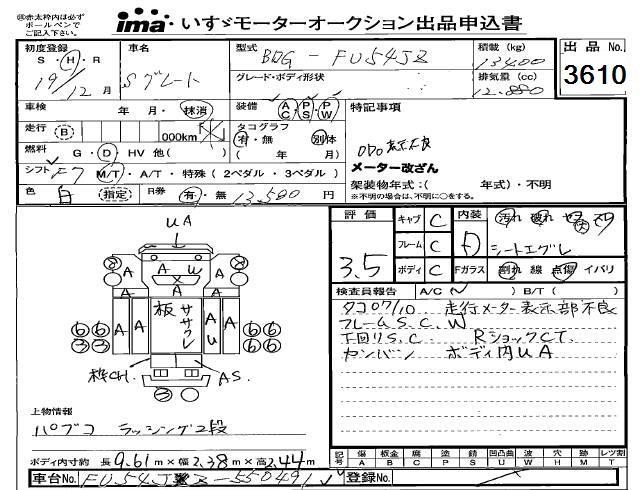 ※赤太枠内は必ず
ボールペンで
ご記入下さい。
ima いすゞモーターオークション出品申込書
初度登録 車名 型式 BDG - FU54JZ 積載 (kg) 13400 出品 No.
S・H・R 19/12月 Sグレート グレード・ボディ形状 排気量 (cc) 12.880 3610
車検 年 月・抹消 装備 AC PS PW 特記事項
走行 B 000km タコグラフ 有・無 別体
ODO表示不良
燃料 G・D・HV 他( ) ( 年 月) メーター改ざん
シフト F7 M/T・A/T・特殊 (2ペダル・3ペダル) 架装物年式:( 年式)・不明
色 白 指定 R券 有・無 13,580 円 ※不明の場合は、不明に○をする。
評価 3.5 キャブ C 内装 D 汚れ 破れ
フレーム C シートエグレ
ボディ C Fガラス 割れ 線 点傷 イバリ
検査員報告 A/C( ) B/T( )
タコ07/10 走行メーター表示部不良
フレームS.C.W
下回りS.C RショックCT.
カンバン ボディ内UA
UA
A A U A
A A A
A A 板ササクレ A U A
6 6 6 6
3 3 3 6
枠CH. AS
上物情報
パブコ ラッシング2段
ボディ内寸約 長9.61m×幅2.38m×高2.44m
記号 傷 板金 腐 塗 錆 凹凸曲 波 穴 跡 レツ割
A B C P S U W H M T
車台No. 登録No.